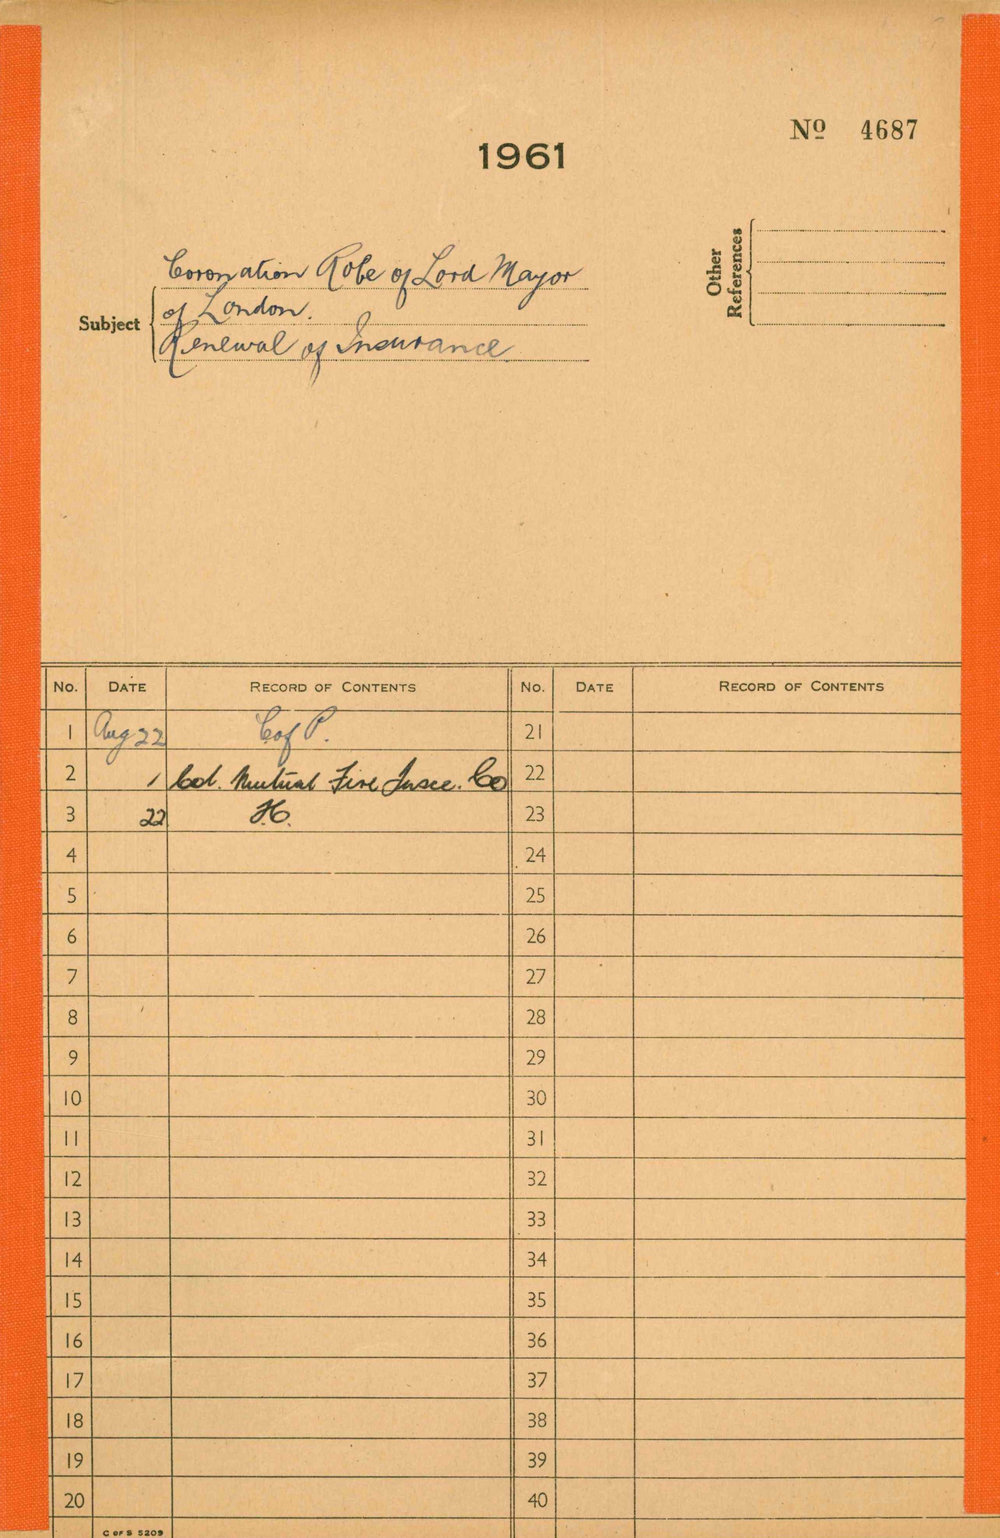 1961
Nº 4687
Other
References
Subject
Coronation Robe of Lord Mayor
of London.
Renewal of Insurance
No. DATE RECORD OF CONTENTS No. DATE RECORD OF CONTENTS
1 Aug 22 C of P. 21
2 1 Col. Mutual Fire Insce. Co 22
3 22 23
4 24
5 25
6 26
7 27
8 28
9 29
10 30
11 31
12 32
13 33
14 34
15 35
16 36
17 37
18 38
19 39
20 40
C OF S 5209